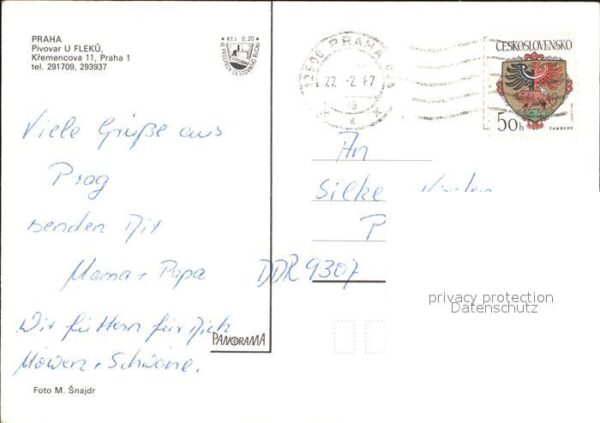 PRAHA
Pivovar U FLEKŮ,
Křemencova 11, Praha 1
tel. 291709, 293937
Kčs 0,20
PRAHA
22.-2.87
ČESKOSLOVENSKO
50h
ŽAMBERK
Viele Grüße aus
Prag
senden Dir
Mama + Papa
Wir füttern für Dich
Möwen + Schwäne.
An
Silke
P
DDR 9307
privacy protection
Datenschutz
PANORAMA
Foto M. Šnajdr